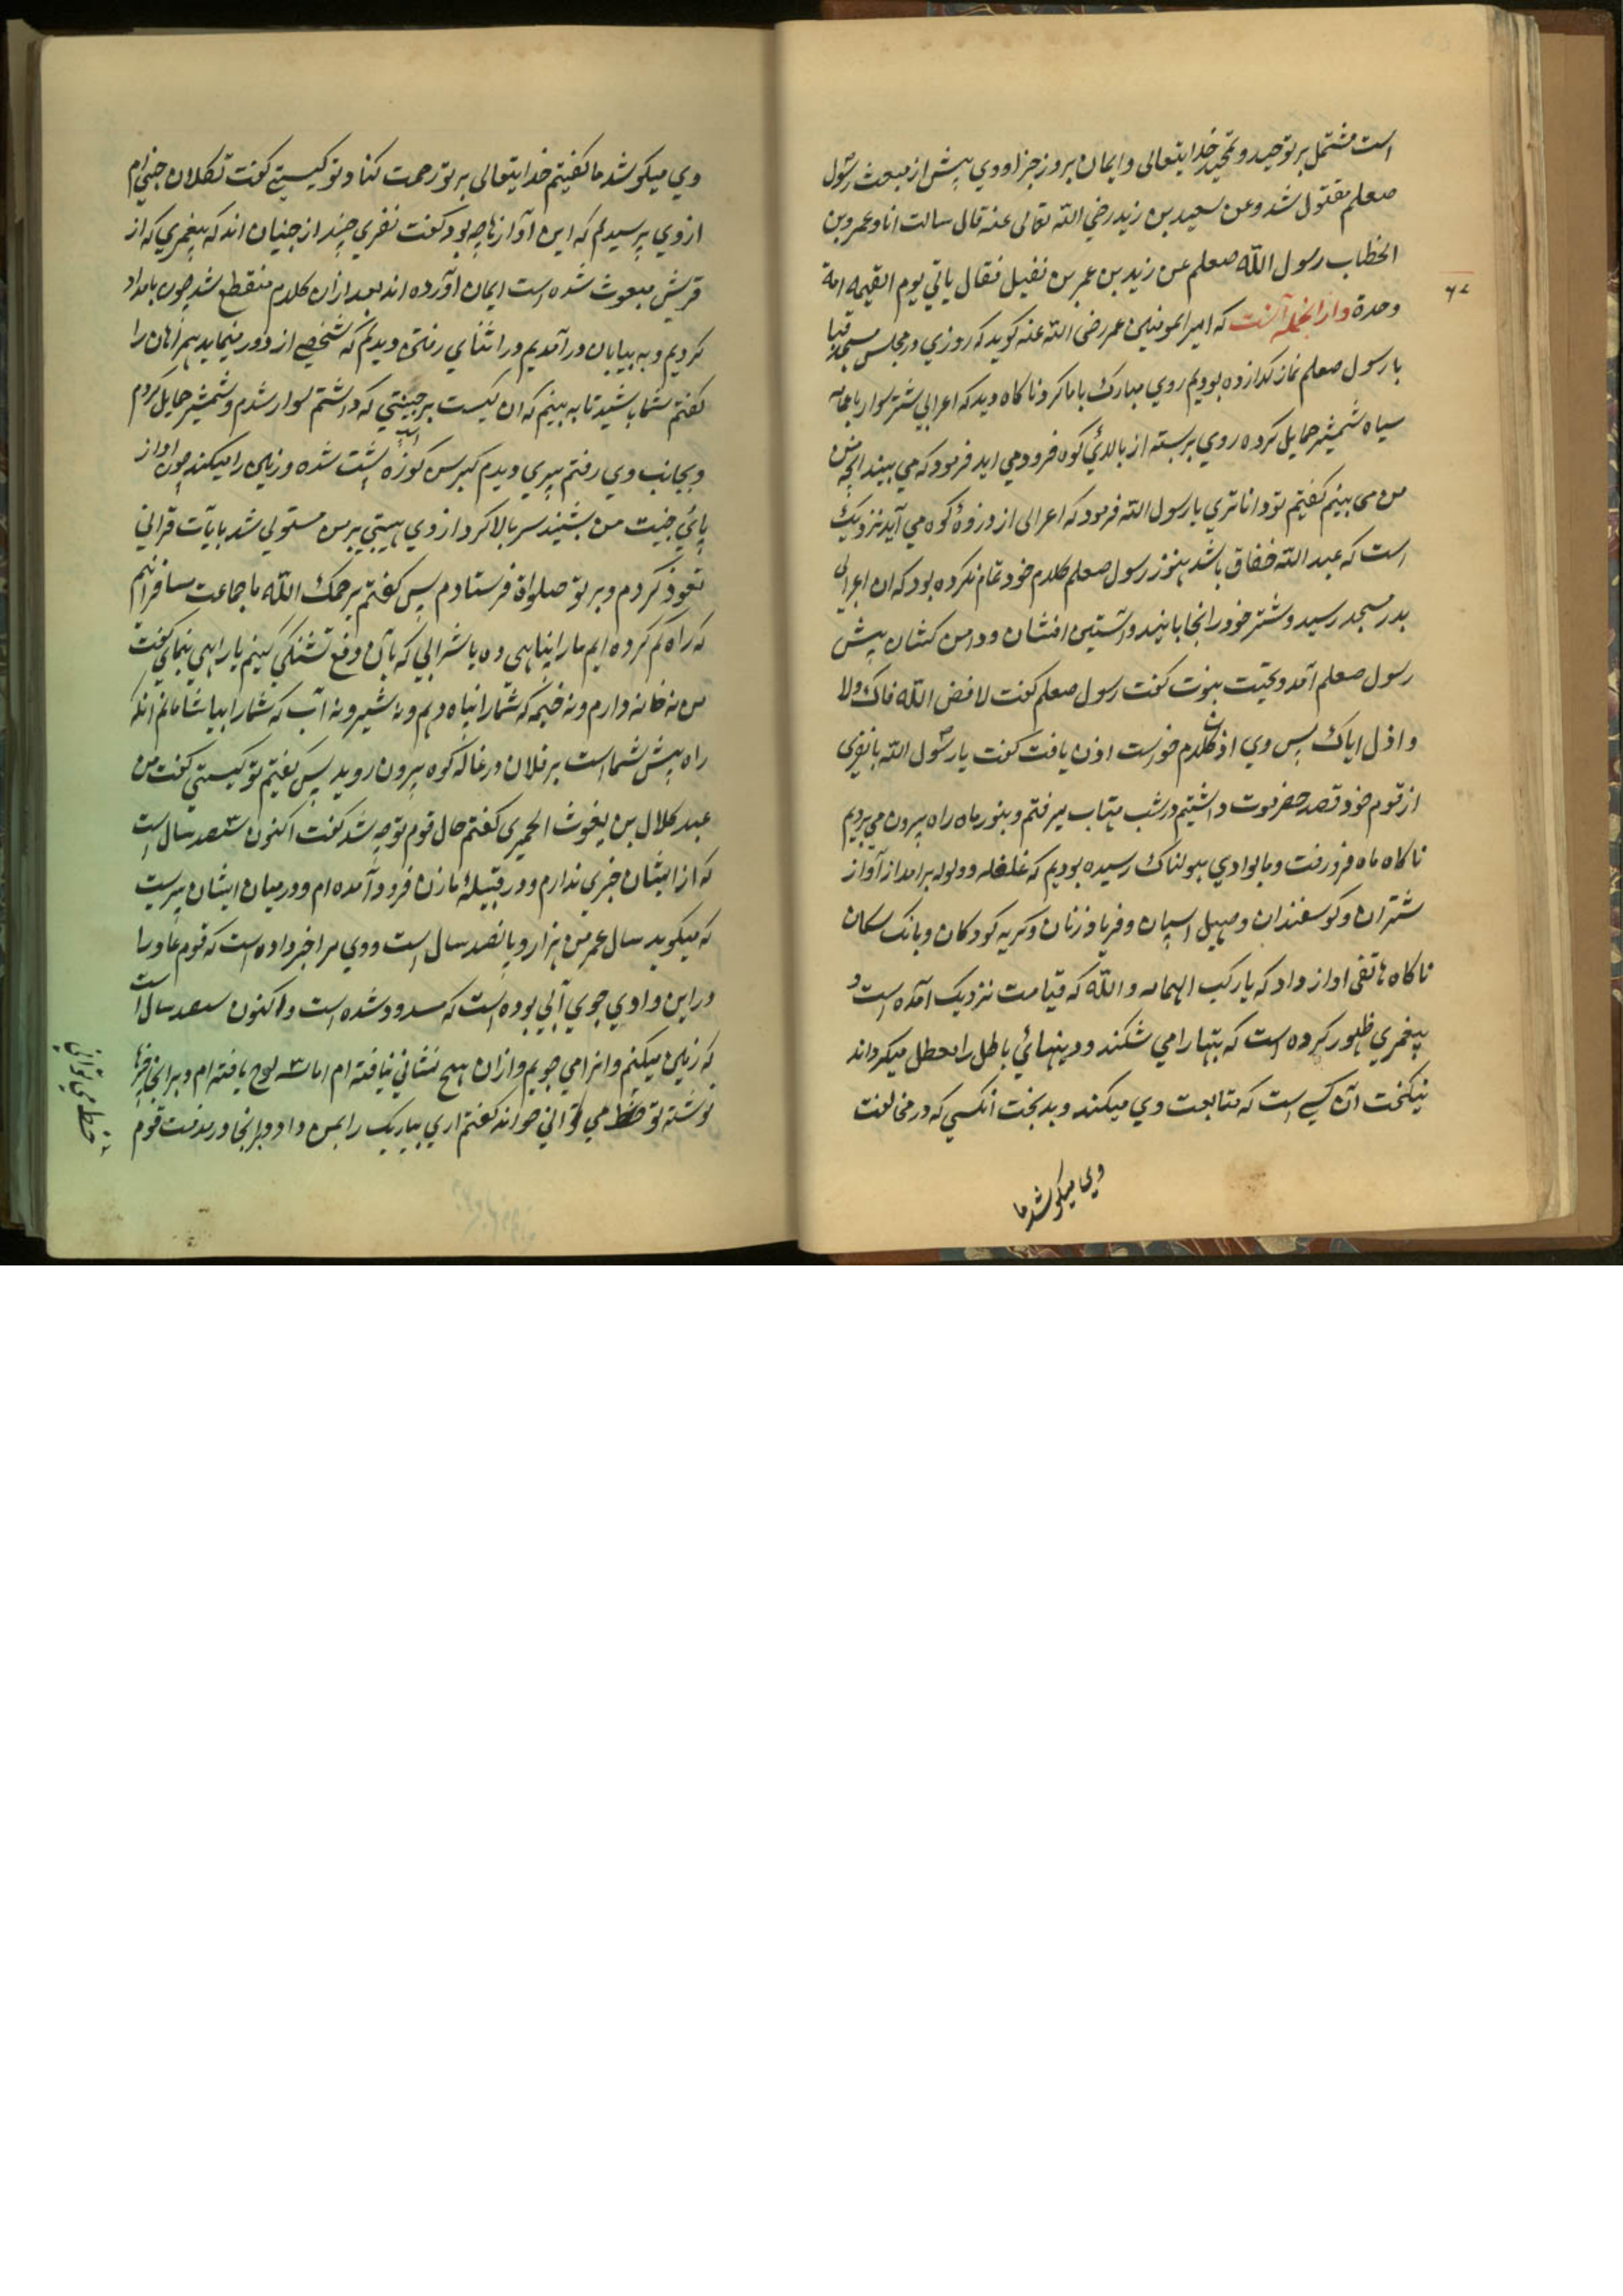 است مشتمل بر توحید و تمجید خدایتعالی و ایمان بروز جزا و وی پیش از مبعث رسول
صعلم مقتول شد و عن سعید بن زید رضی الله تعالی عنه قال سالت انا و عمر بن
الخطاب رسول الله صعلم عن زید بن عمر بن نفیل فقال یاتی یوم القیمه امة
وحدة و از انجمله آنست که امیر المومنین عمر رضی الله عنه کوید که روزی در مجلس مسجد قبا
با رسول صعلم نماز کذارده بودیم روی مبارک با ما کرد ناکاه دید که اعرابی شتر سوار با عمامه
سیاه شمشیر حمایل کرده روی بربسته از بالائی کوه فرود می اید فرمود که می بیند انچه من
من می بینم کفتیم تو داناتری یا رسول الله فرمود که اعرابی از دروۀ کوه می آید نزدیک
است که عبد الله خفاق باشد هنوز رسول صعلم کلام خود تمام نکرده بود که ان اعرابی
بدر مسجد رسید و شتر خود را انجا بابنید و استین افشان و دامن کشان پیش
رسول صعلم آمد و تحیت نبوت کفت رسول صعلم کفت لا فض الله فاک ولا
و اذل ایاک پس وی اذن کلام خواست اذن یافت کفت یا رسول الله با نفری
از قوم خود قصد حضرموت داشتیم در شب مهتاب میرفتم و بنور ماه راه بیرون می بردیم
ناکاه ماه فرو رفت و ما بوادی هولناک رسیده بودیم که غلغله و ولوله برامد از آواز
شتران و کوسفندان و صهیل اسپان و فریاد زنان و کریه کودکان و بانک سکان
ناکاه هاتفی اواز داد که یا رکب الهمامه والله که قیامت نزدیک آمده است و
پیغمری ظهور کرده است که بتها را می شکند و دینهائی باطل را معطل میکرداند
نیکبخت آن کسی است که متابعت وی میکند و بدبخت انکسی که در مخالفت
وی میکوشد ما
۶۷
وی میکوشد ما کفتیم خدایتعالی بر تو رحمت کناد تو کیستی کفت تکلان جنی ام
از وی پرسیدیم که این آوازها چه بود کفت نفری چند از جنیان اند که پیغمبری که از
قریش مبعوث شده است ایمان آورده اند بعد از ان کلام منقطع شد چون بامداد
کردیم و به بیابان در آمدیم در اثنای رفتن دیدیم که شخصی از دور مینماید همراهان را
کفتم شما باشید تا به بینم که ان کیست بر جنیبتی که داشتم سوار شدم و شمشیر حمایل کردم
و بجانب وی رفتم پیری دیدم کبرسن کوزه پشت شده و زمین را میکند چون اواز
پائی جنیبت من بشنید سر بالا کرد از وی هیبتی بر من مستولی شد بآیات قرانی
تعوذ کردم و بر تو صلواة فرستادم پس کفتم یرحمک الله ما جماعت مسافرانیم
که راه کم کرده ایم ما را پناهی ده یا شرابی که بآن دفع تشنکی کنیم یا راهی بنمای کفت
من نه خانه دارم و نه خیمه که شما را پناه دهم و نه شیر و نه آب که شما را بیاشامانم انکه
راه پیش شما است بر فلان درغاله کوه بیرون روید پس کفتم تو کیستی کفت من
عبد کلال بن یغوث الحمیری کفتم حال قوم تو چه شد کفت اکنون سصد سال است
که از ایشان خبری ندارم و در قبیلۀ مازن فرود آمده ام و در میان ایشان پیریست
که میکوید سال عمر من هزار و پانصد سال است و وی مرا خبر داده است که قوم عاد را
در این وادی جوی آبی بوده است که مسدود شده است و اکنون سصد سال است
که زمین میکنم و انرا می جویم و ازان هیچ نشانی نیافته ام اما سه لوح یافته ام و بر انجا چیزها
نوشته تو خط می توانی خواند کفتم اری بیاریک را بمن داد و بر انجا در مذمت قوم
خط می توانی